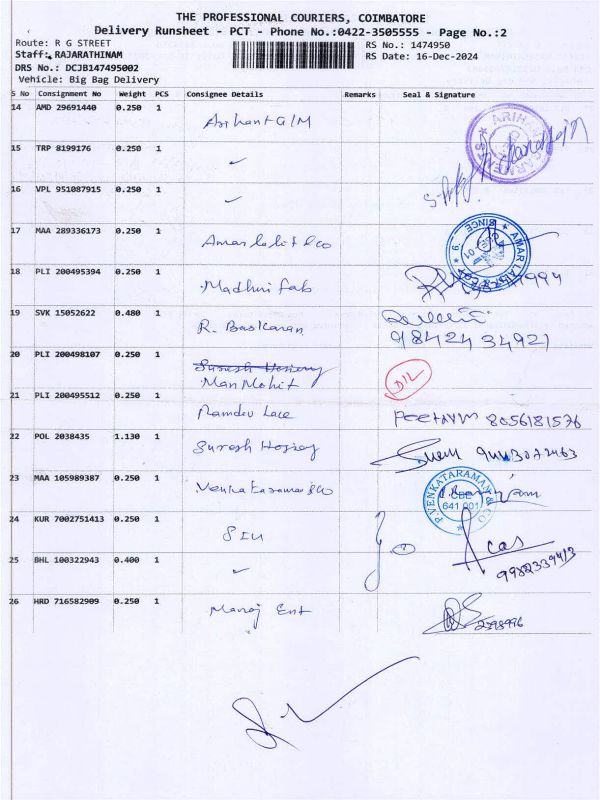 THE PROFESSIONAL COURIERS, COIMBATORE
Delivery Runsheet - PCT - Phone No.:0422-3505555 - Page No.:2
Route: R G STREET RS No.: 1474950
Staff: RAJARATHINAM RS Date: 16-Dec-2024
DRS No.: DCJB147495002
Vehicle: Big Bag Delivery
S No Consignment No Weight PCS Consignee Details Remarks Seal & Signature
14 AMD 29691440 0.250 1 Arihant G/M
15 TRP 8199176 0.250 1 ✓
16 VPL 951087915 0.250 1 ✓
17 MAA 289336173 0.250 1 Amar Lalit & Co
18 PLI 200495394 0.250 1 Madhuri Fab
19 SVK 15052622 0.480 1 R. Baskaran
98424 34921
20 PLI 200498107 0.250 1 Suresh Hosiery
Man Mohit DIL
21 PLI 200495512 0.250 1 Ramdev Lace PEETHAM 8056181576
22 POL 2038435 1.130 1 Suresh Hosiery
23 MAA 105989387 0.250 1 Venkataraman & Co P.VENKATARAMAN & CO CBE 641 001
24 KUR 7002751413 0.250 1 SIU
25 BHL 100322943 0.400 1 ✓
26 HRD 716582909 0.250 1 Manoj Ent